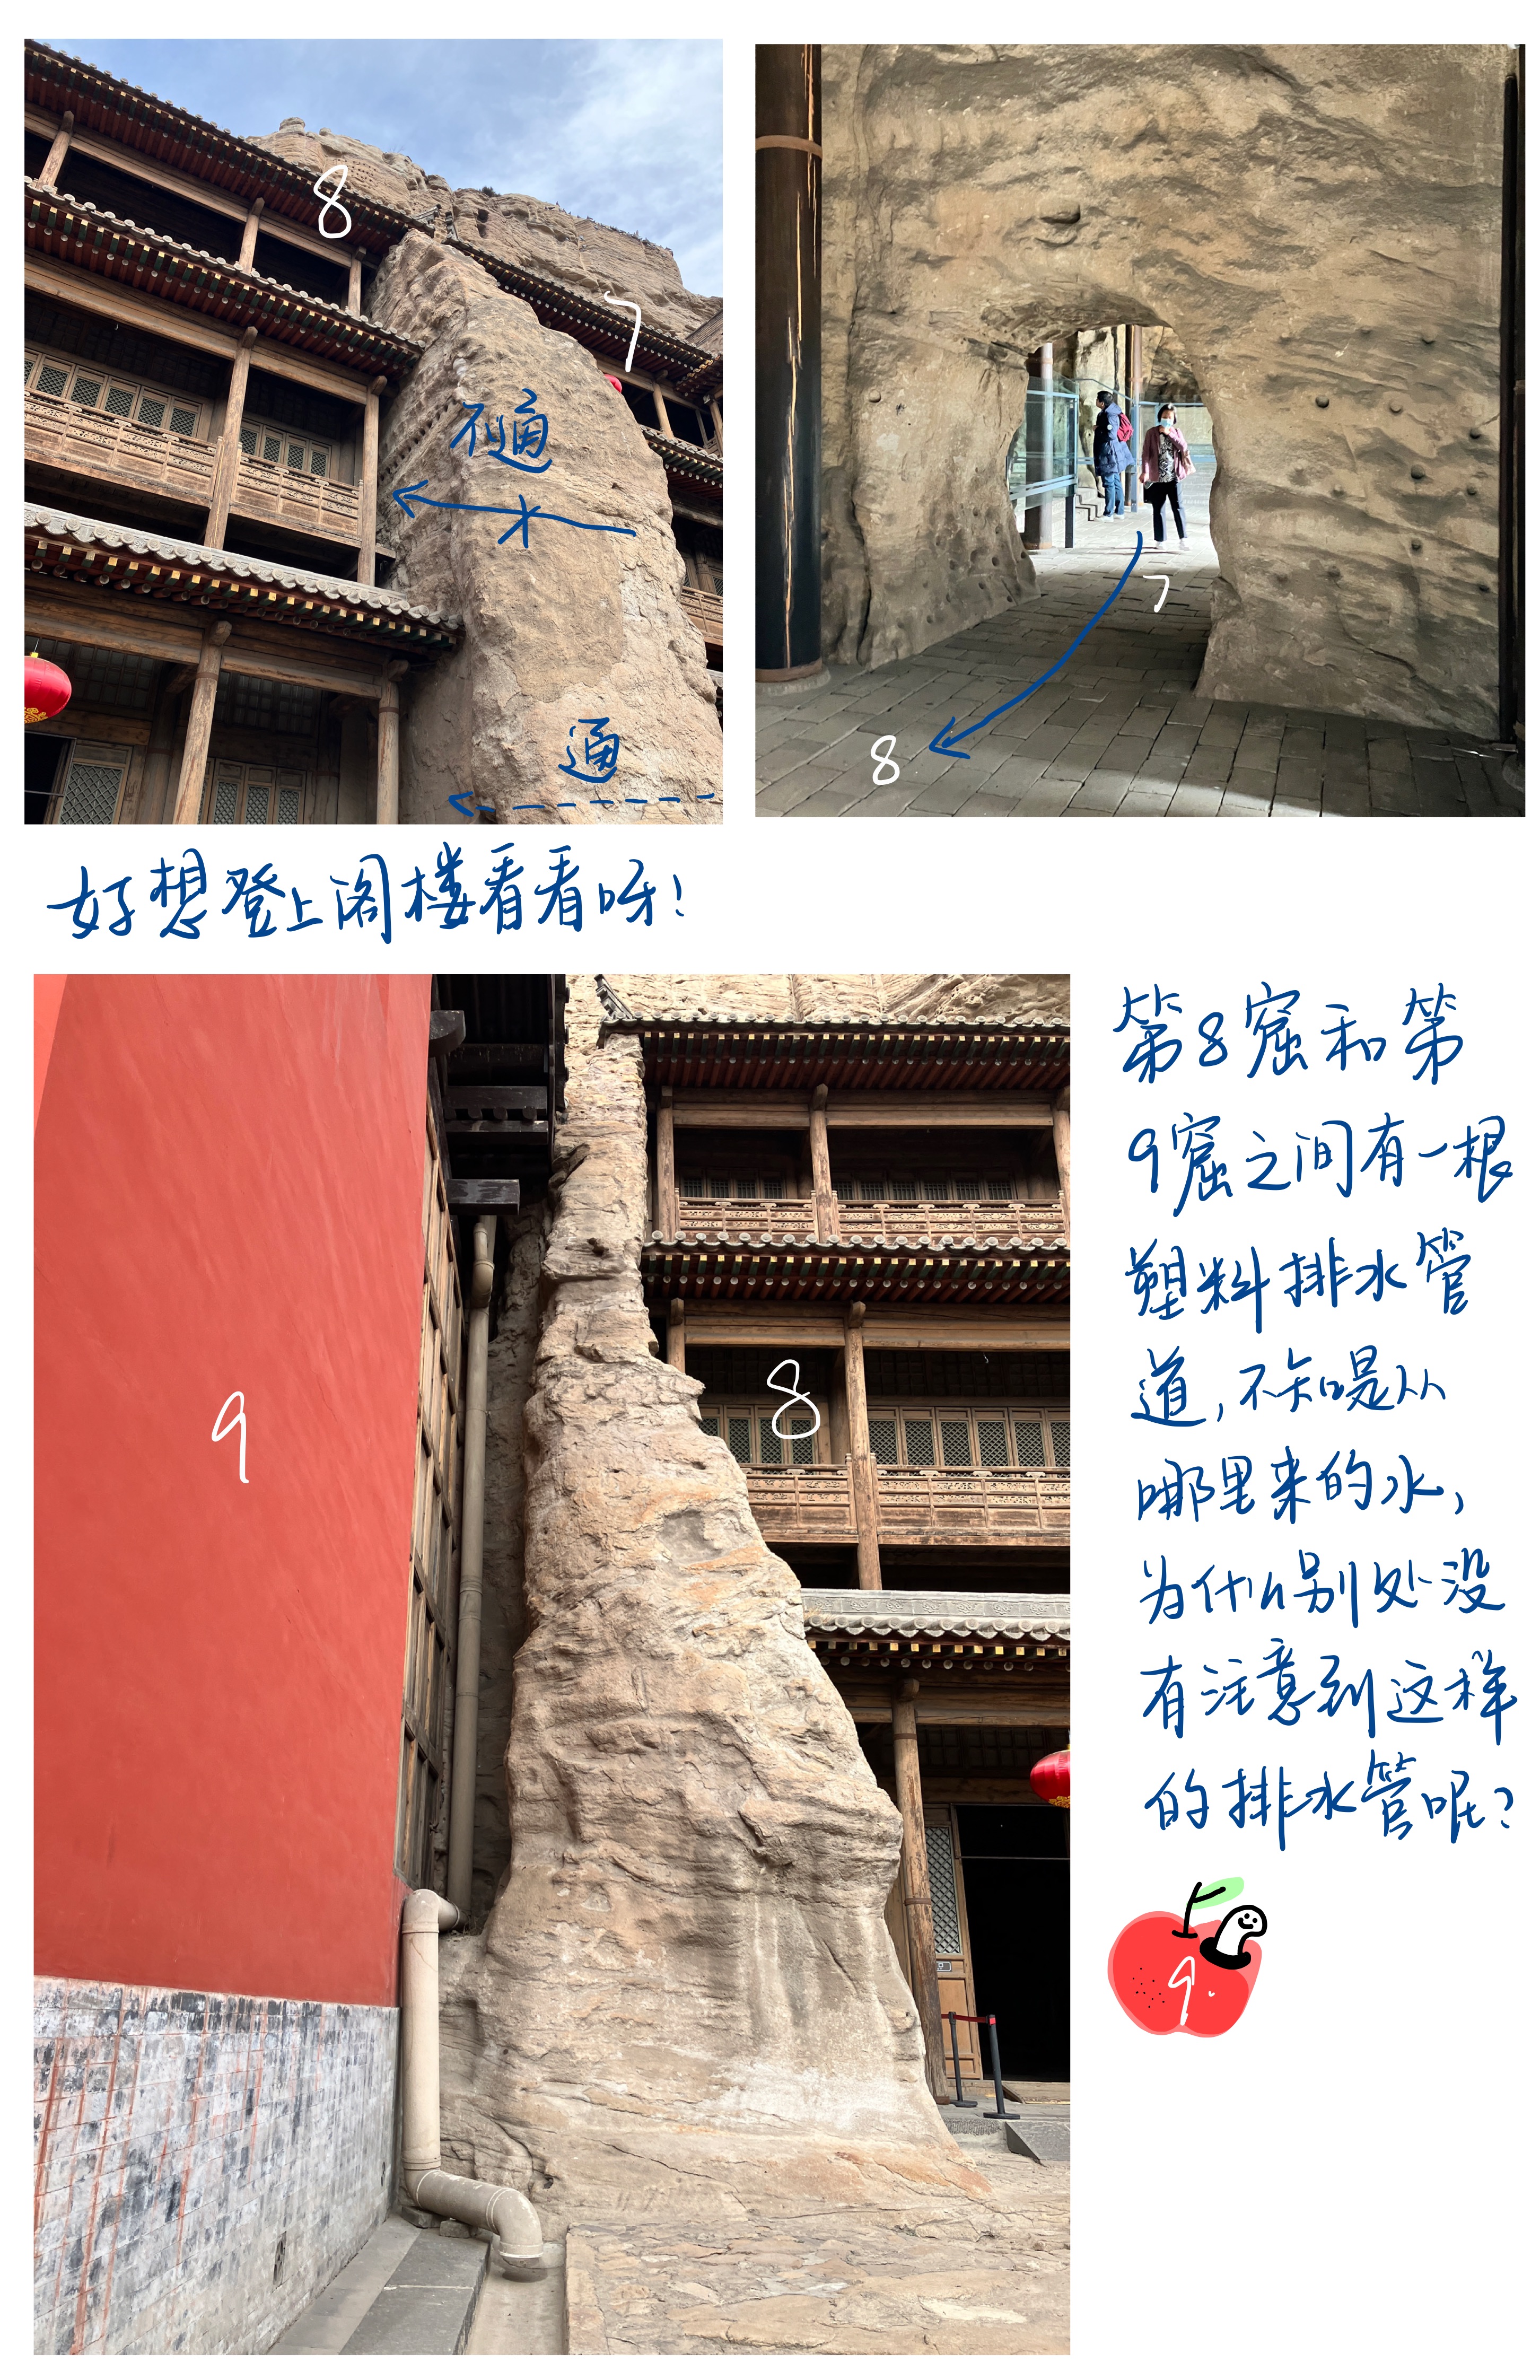 8
7
不通
通
7
8
好想登上阁楼看看呀！
9
8
第8窟和第
9窟之间有一根
塑料排水管
道，不知是从
哪里来的水，
为什么别处没
有注意到这样
的排水管呢？
9.